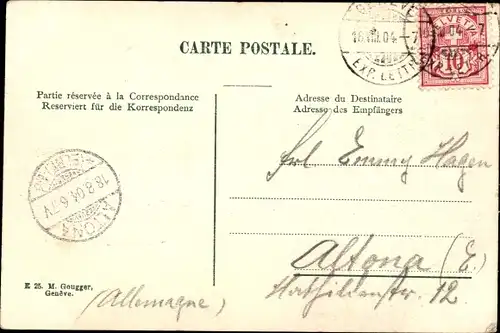 CARTE POSTALE.
GENÈVE
16.VIII.04.-7
EXP. LETTR.
HELVETIA
10
Partie réservée à la Correspondance
Reserviert für die Korrespondenz
Adresse du Destinataire
Adresse des Empfängers
Frl. Emmy Hagen
18.8.04.6-7V
ALTONA
Altona (E.)
Mathildenstr. 12.
E 25. M. Gougger,
Genève.
(Allemagne)